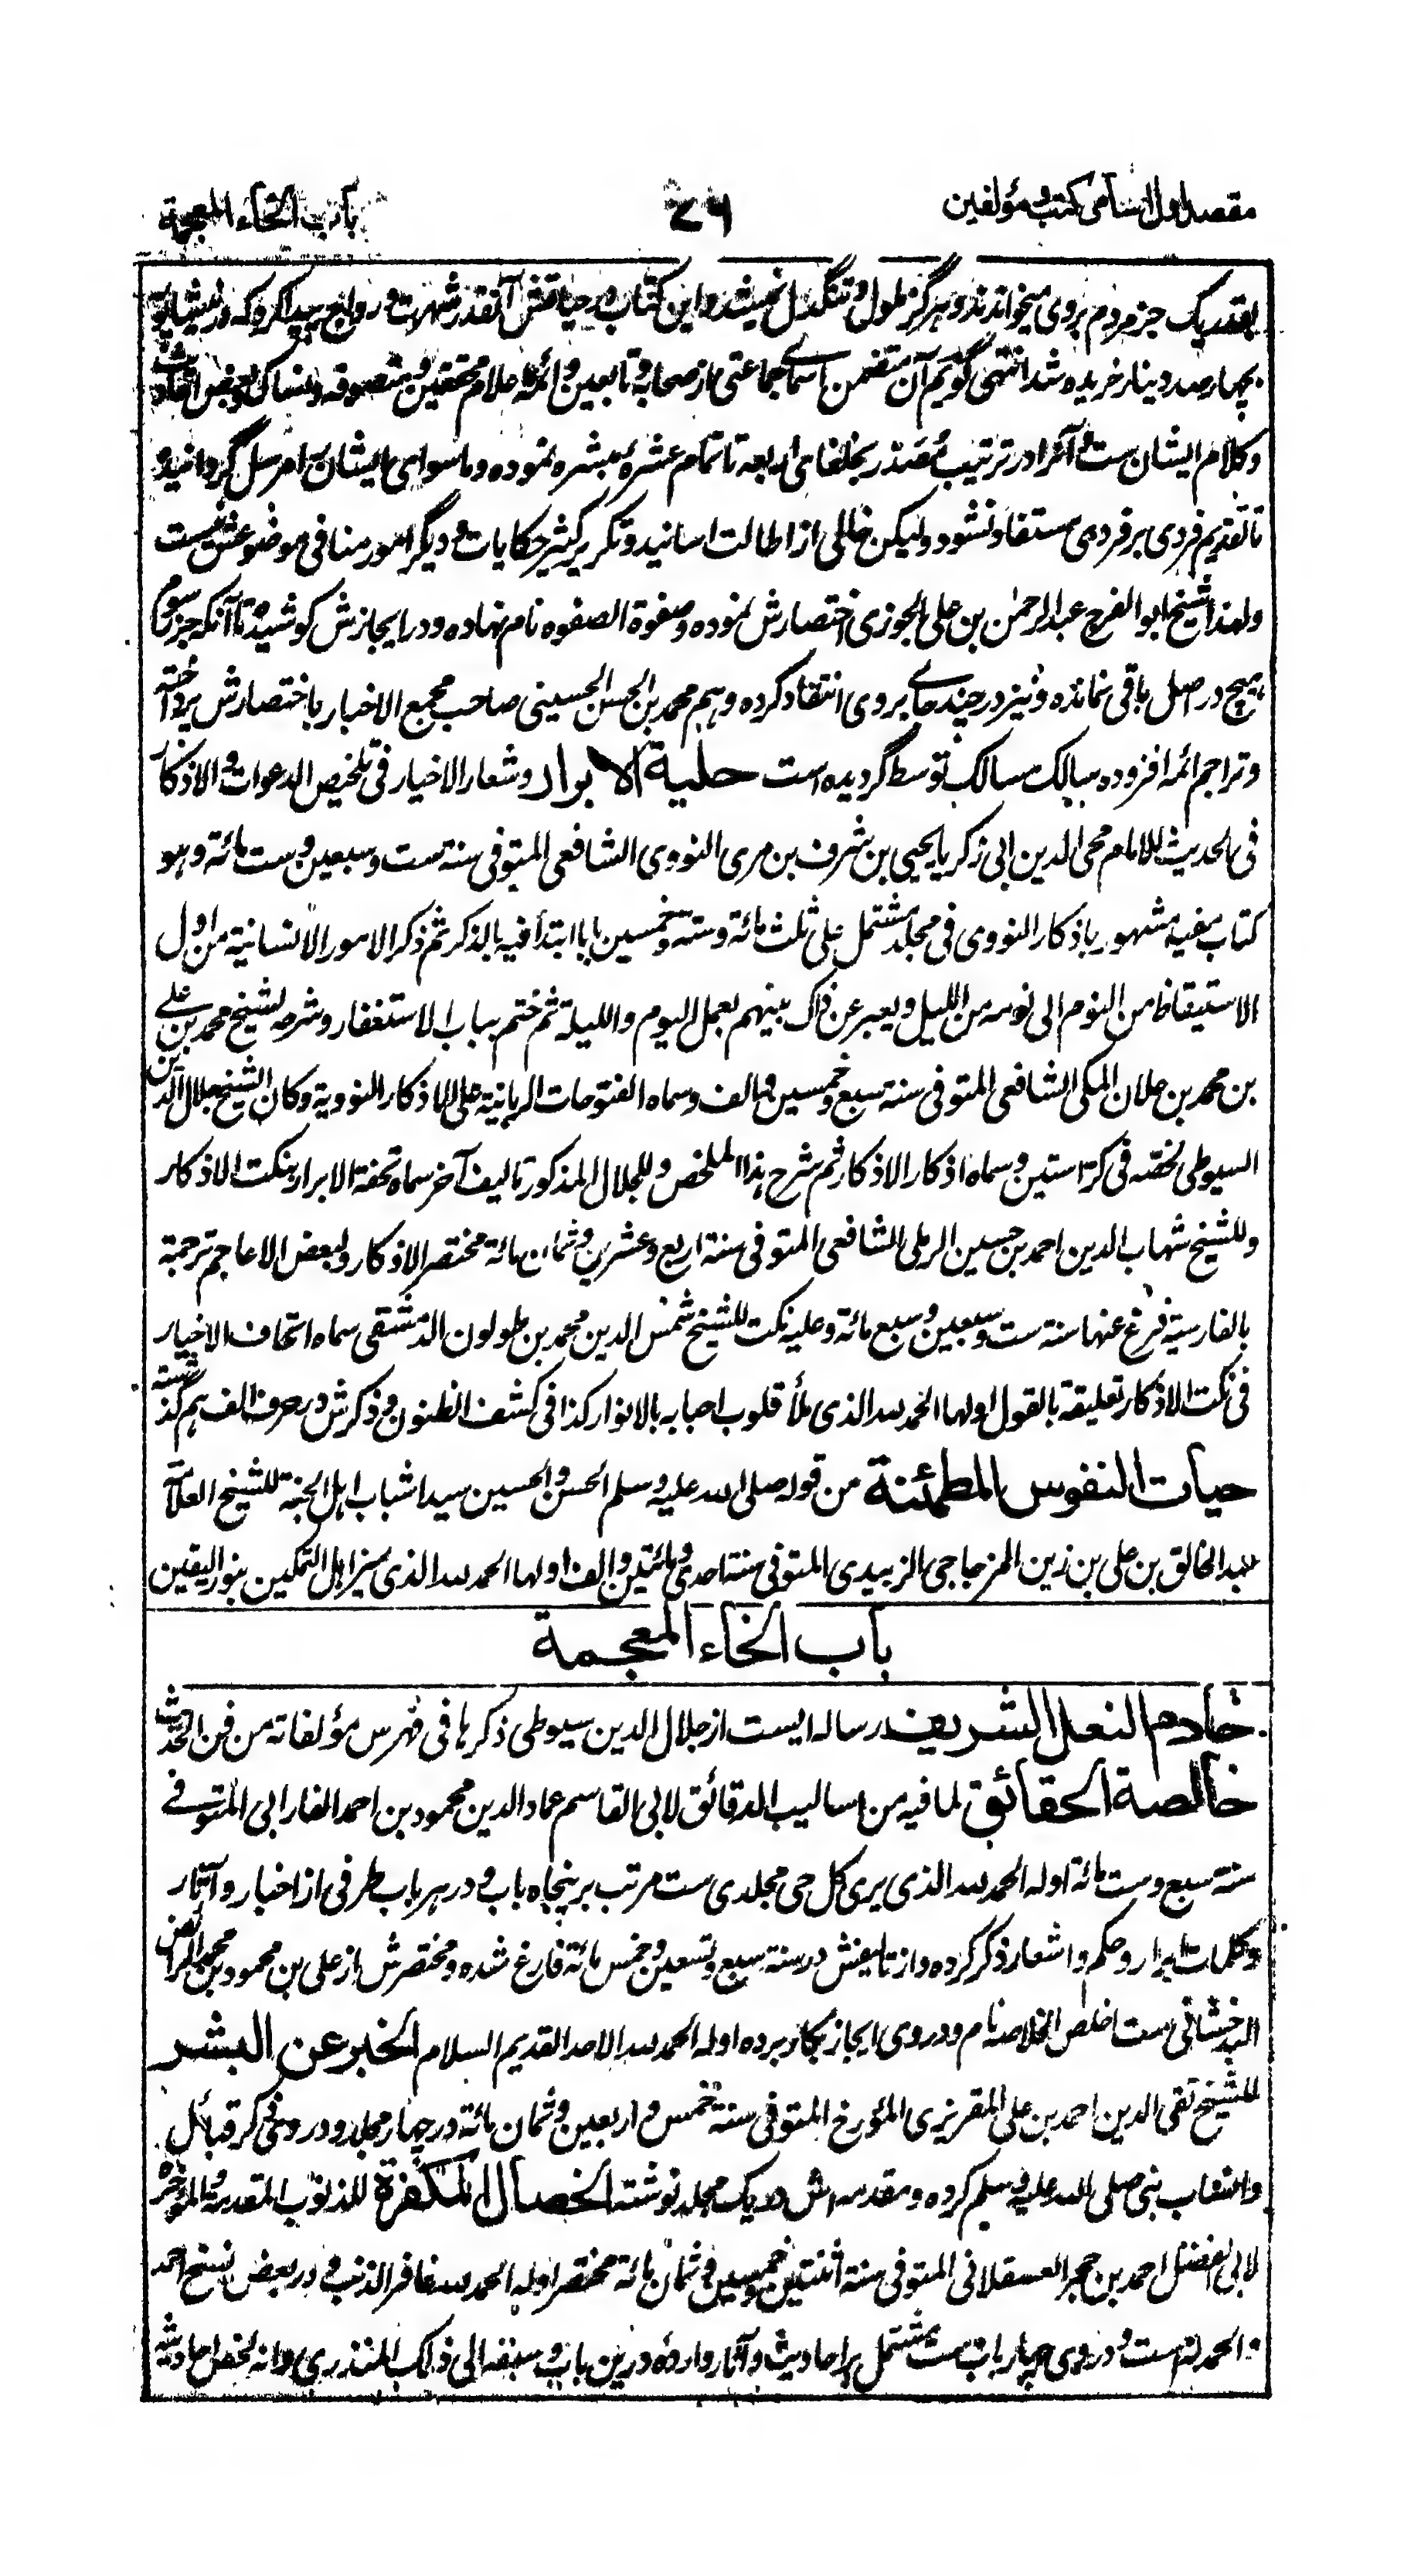 مقصد اول اسامی کتب و مؤلفین ۷۶ باب الخاء المعجمة
بقدر یک جز مردم بروی میخواندند و هرگز ملول و تنگدل نمیشد و این کتاب در حیاتش آنقدر شهرت و رواج پیدا کرد که در نیشاپور
بچهار صد دینار خریده شد انتهی گویم آن متضمن اسمای جماعتی از صحابه و تابعین و ائمه اعلام محققین و متصوفه و نساک و بعض احادیث
و کلام ایشان ست و آنرا در ترتیب مصدر بخلفای اربعه تا تمام عشره مبشره نموده و ماسوای ایشان را مرسل گردانیده
تا تقدیم فردی بر فردی مستفاد نشود ولیکن خالی از اطالت اسانید و تکریر کثیر حکایات و دیگر امور منافی موضوعش نیست
ولهذا شیخ ابو الفرج عبد الرحمن بن علی الجوزی اختصارش نموده و صفوة الصفوه نام نهاده و در ایجازش کوشیده تا آنکه جز رسوم
هیچ در اصل باقی نمانده و نیز در چند جای بروی انتقاد کرده و هم محمد بن الحسن الحسینی صاحب مجمع الاخبار باختصارش پرداخته
و تراجم ائمه افزوده بسالک مسالک توسط گردیده است حلیة الابرار و شعار الاخیار فی تلخیص الدعوات و الاذکار
فی الحدیث للامام محی الدین ابی زکریا یحیی بن شرف بن مری النووی الشافعی المتوفی سنة ست و سبعین و ست مائة و هو
کتاب مفید مشهور باذکار النووی فی مجلد مشتمل علی ثلث مائة و ستة و خمسین بابا ابتدأ فیه بالذکر ثم ذکر الامور الانسانیة من اول
الاستیقاظ من النوم الی نومه من اللیل و یعبر عن ذاک بینهم بعمل الیوم و اللیلة ثم ختم بباب الاستغفار و شرحه لشیخ محمد بن علی
بن محمد بن علان المکی الشافعی المتوفی سنة سبع و خمسین و الف و سماه الفتوحات الربانیة علی الاذکار النوویة و کان الشیخ جلال الدین
السیوطی لخصه فی کراستین و سماه اذکار الاذکار ثم شرح هذا الملخص و للجلال المذکور تالیف آخر سماه تحفة الابرار بنکت الاذکار
و للشیخ شهاب الدین احمد بن حسین الرملی الشافعی المتوفی سنة اربع و عشرین و ثمان مائة مختصر الاذکار و لبعض الاعاجم ترجمة
بالفارسیة فرغ عنها سنة ست و سبعین و سبع مائة و علیه نکت للشیخ شمس الدین محمد بن طولون الدمشقی سماه اتحاف الاخیار
فی نکت الاذکار تعلیقة بالقول اولها الحمد لله الذی ملأ قلوب احبابه بالانوار کذا فی کشف الظنون و ذکرش در حرف الف هم گذشته
حیات النفوس المطمئنة من قوله صلی الله علیه و سلم الحسن و الحسین سیدا شباب اهل الجنة للشیخ العلامة
عبد الخالق بن علی بن زین المزجاجی الزبیدی المتوفی سنة احدی و مائتین و الف اولها الحمد لله الذی میز اهل التمکین بنور الیقین
باب الخاء المعجمة
خادم النعل الشریف رساله ایست از جلال الدین سیوطی ذکرها فی فهرس مؤلفاته من فن الحدیث
خالصة الحقائق لما فیه من اسالیب الدقائق لابی القاسم عماد الدین محمود بن احمد الفارابی المتوفی
سنة سبع و ست مائة اوله الحمد لله الذی یری کل حی مجلدی ست مرتب بر پنجاه باب و در هر باب طرفی از اخبار و آثار
و کلمات ابرار و حکم و اشعار ذکر کرده و از تالیفش در سنة سبع و تسعین و خمس مائة فارغ شده و مختصرش از علی بن محمود بن محمد الرائض
البدخشانی ست اخلص الخلاصه نام و در وی ایجاز بکار برده اوله الحمد لله الاحد القدیم السلام الخبر عن البشر
للشیخ تقی الدین احمد بن علی المقریزی المؤرخ المتوفی سنة خمس و اربعین و ثمان مائة در چهار مجلد و در وی ذکر قبائل
و انساب نبی صلی الله علیه و سلم کرده و مقدمه اش در یک مجلد نوشته الخصال المکفرة للذنوب المقدمة و المؤخرة
لابی الفضل احمد بن حجر العسقلانی المتوفی سنة اثنتین و خمسین و ثمان مائة مختصر اوله الحمد لله غافر الذنب و در بعض نسخ احمد
الحمد لله است و در وی چهار باب ست مشتمل بر احادیث و آثار وارده درین باب و سبقه الی ذلک المنذری و انه لخص احادیثه